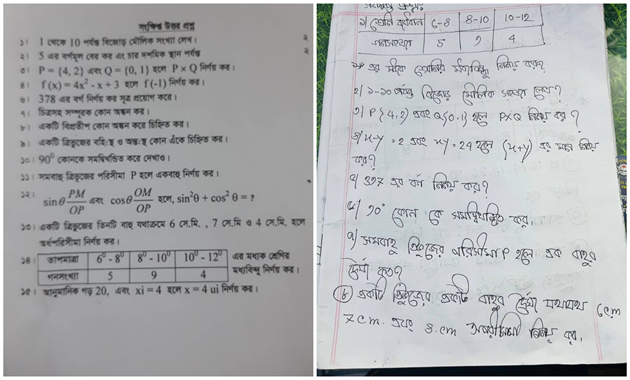 সংক্ষিপ্ত উত্তর প্রশ্ন
১। 1 থেকে 10 পর্যন্ত বিজোড় মৌলিক সংখ্যা লেখ। ২
২। 5 এর বর্গমূল বের কর এং চার দশমিক স্থান পর্যন্ত ২
৩। P = {4, 2} এবং Q = {0, 1} হলে P × Q নির্ণয় কর।
৪। f (x) = 4x² - x + 3 হলে f (-1) নির্ণয় কর।
৬। 378 এর বর্গ নির্ণয় কর সূত্র প্রয়োগ করে।
৭। চিত্রসহ সম্পূরক কোন অঙ্কন কর।
৮। একটি বিপ্রতীপ কোন অঙ্কন করে চিহ্নিত কর।
৯। একটি ত্রিভুজের বহিঃস্থ ও অন্তঃস্থ কোন এঁকে চিহ্নিত কর।
১০। 90⁰ কোনকে সমদ্বিখন্ডিত করে দেখাও।
১১। সমবাহু ত্রিভুজের পরিসীমা P হলে একবাহু নির্ণয় কর।
১২। sin θ PM/OP এবং . cos θ OM/OP হলে, sin²θ + cos² θ = ?
১৩। একটি ত্রিভুজের তিনটি বাহু যথাক্রমে 6 সে.মি. , 7 সে.মি ও 4 সে.মি. হলে
অর্ধপরিসীমা নির্ণয় কর।
১৪। তাপমাত্রা 6⁰ - 8⁰ 8⁰ - 10⁰ 10⁰ - 12⁰ এর মধ্যক শ্রেণির
গনসংখ্যা 5 9 4 মধ্যবিন্দু নির্ণয় কর।
১৫। আনুমানিক গড় 20, এবং xi = 4 হলে x = 4 ui নির্ণয় কর।
১) শ্রেণি 6-8 8-10 10-12
গনসংখ্যা 5 9 4
এর শ্রেণির মধ্যবিন্দু নির্ণয় কর?
২) ১-১০ বিজোড় মৌলিক সংখ্যা লেখ?
৩) P{4,2} এবং Q{0,1} হলে P×Q নির্ণয় কর?
৪) x-y = 2 এবং xy = 24 হলে (x+y) এর মান নির্ণয়
কর?
৫) এর বর্গ নির্ণয় কর?
৬) ৯০° কোণ কে সমদ্বিখন্ডিত কর
৭) সমবাহু ত্রিভুজের পরিসীমা P হলে এক বাহুর
দৈর্ঘ্য কত?
৮) একটি ত্রিভুজের একটি বাহুর দৈর্ঘ্য যথাক্রমে 6cm
7cm এবং cm নির্ণয় কর.